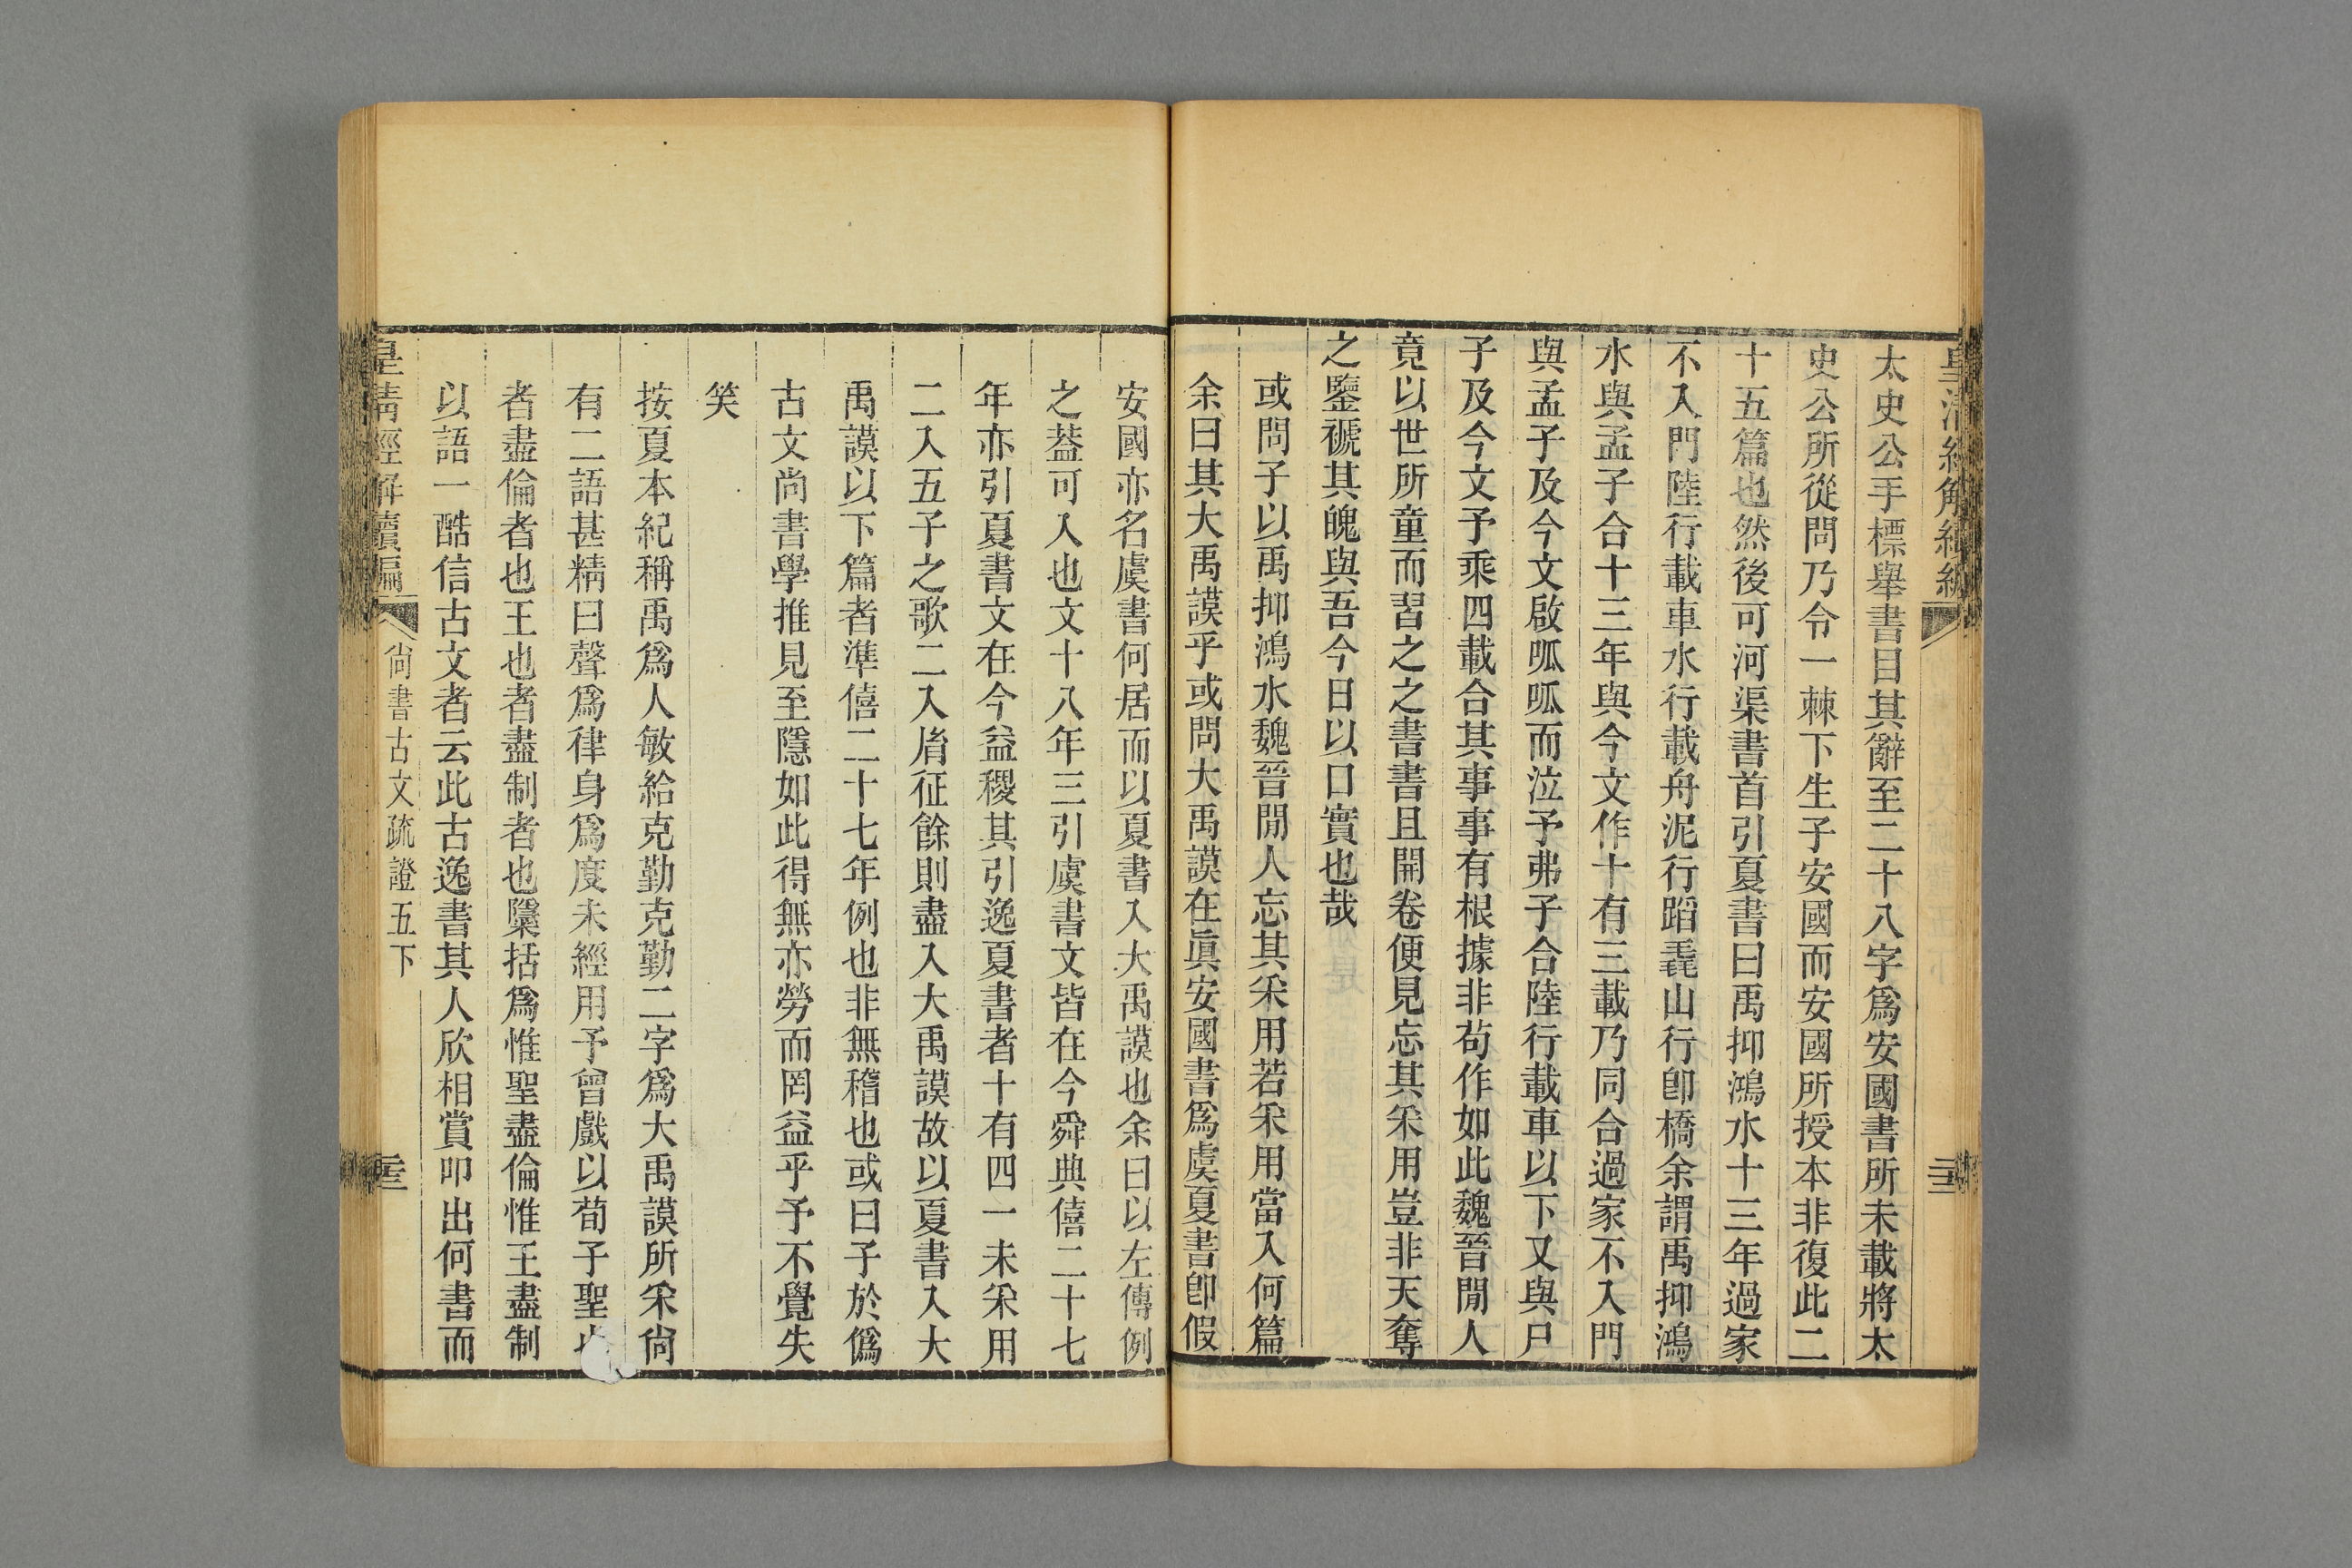 太史公手標舉書目其辭至二十八字爲安國書所未載將太
史公所從問乃令一棘下生子安國而安國所授本非復此二
十五篇也然後可河渠書首引夏書曰禹抑鴻水十三年過家
不入門陸行載車水行載舟泥行蹈毳山行卽橋余謂禹抑鴻
水與孟子合十三年與今文作十有三載乃同合過家不入門
與孟子及今文啟呱呱而泣予弗子合陸行載車以下又與尸
子及今文予乘四載合其事事有根據非苟作如此魏晉閒人
竟以世所童而習之之書書且開卷便見忘其采用豈非天奪
之鑒褫其魄與吾今日以口實也哉
或問子以禹抑鴻水魏晉閒人忘其采用若采用當入何篇
余曰其大禹謨乎或問大禹謨在眞安國書爲虞夏書卽假
安國亦名虞書何居而以夏書入大禹謨也余曰以左傳例
之葢可入也文十八年三引虞書文皆在今舜典僖二十七
年亦引夏書文在今益稷其引逸夏書者十有四一未采用
二入五子之歌二入胤征餘則盡入大禹謨故以夏書入大
禹謨以下篇者準僖二十七年例也非無稽也或曰子於僞
古文尚書學推見至隱如此得無亦勞而罔益乎予不覺失
笑
按夏本紀稱禹爲人敏給克勤克勤二字爲大禹謨所采尙
有二語甚精曰聲爲律身爲度未經用予曾戲以荀子聖也
者盡倫者也王也者盡制者也檃括爲惟聖盡倫惟王盡制
以語一酷信古文者云此古逸書其人欣相賞叩出何書而
皇清經解續編
尙書古文疏證五下